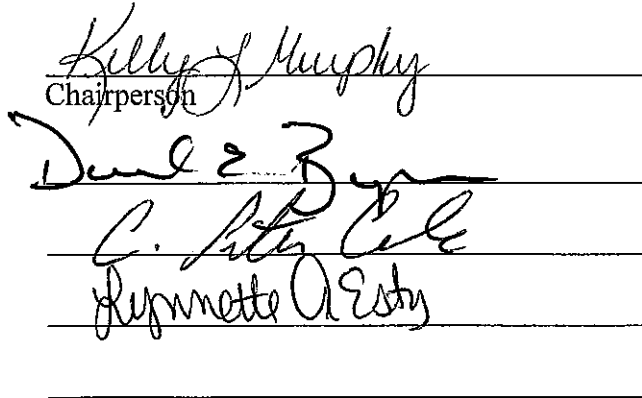 Kelly L Murphy
Chairperson
E. Byrne
C. Peter Cole
Lynnette A Esty